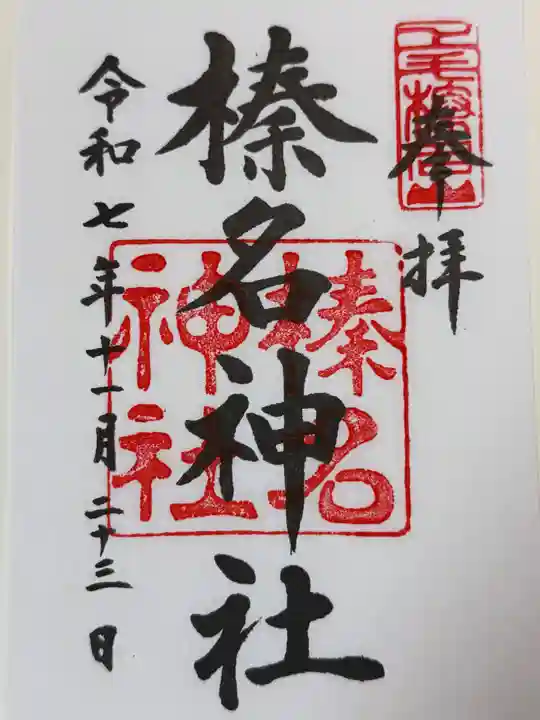 上毛榛名山
奉拝
榛名神社
榛名神社
令和七年十一月二十三日